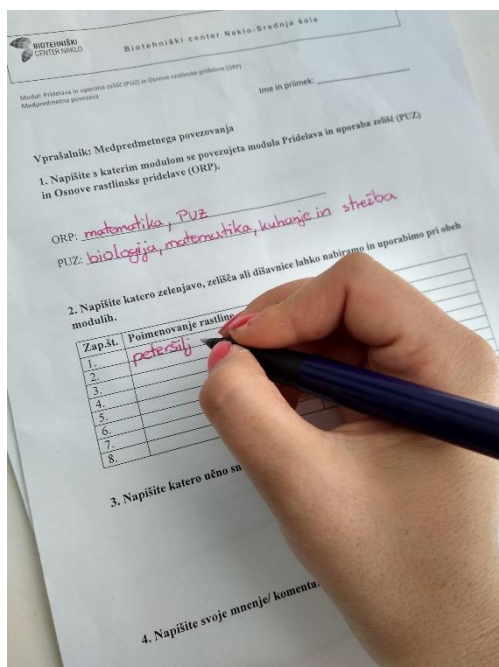 BIOTEHNIŠKI
CENTER NAKLO
Biotehniški center Naklo-Srednja šola
Modul: Pridelava in uporaba zelišč (PUZ) in Osnove rastlinske pridelave (ORP)
Medpredmetna povezava
Ime in priimek:
Vprašalnik: Medpredmetnega povezovanja
1. Napišite s katerim modulom se povezujeta modula Pridelava in uporaba zelišč (PUZ)
in Osnove rastlinske pridelave (ORP).
ORP: matematika, PUZ
PUZ: biologija, matematika, kuhanje in strežba
2. Napišite katero zelenjavo, zelišča ali dišavnice lahko nabiramo in uporabimo pri obeh
modulih.
Zap.št. Poimenovanje rastline
1. peteršilj
2.
3.
4.
5.
6.
7.
8.
3. Napišite katero učno
4. Napišite svoje mnenje/